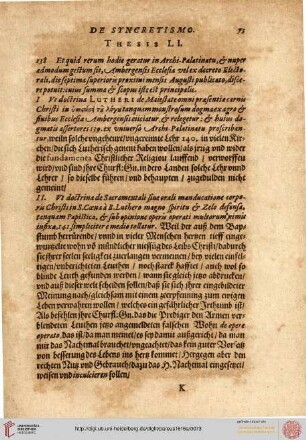 DE SYNCRETISMO. 73
THESIS LI.
138 Et quid rerum hodie geratur in Archi-Palatinatu, & nuper
admodum gestum sit, Ambergensis Ecclesia vel ex decreto Electo-
rali, die septima superioris proximi mensis Augusti publicato, disce-
re poterit: cuius summa & scopus iste est principalis.
I Vt doctrina LUTHERI de Maiestate omnipræsentiæ carnis
Christi in
finibus Ecclesiæ Ambergensis eiiciatur, & relegetur; & huius do-
gmatis assertores 139. ex universo Archi-Palatinatu proscriban-
tur, weiln solche vngehewr vnd grewliche Lehr 140. in vielen Kir-
chen/ die sich Lutherisch genent haben wöllen/ als irrig vnd wider
die fundamenta Christlicher Religion lauffend / verworffen
wird/ vnd sind ihre Churf: Gn. in dero Landen solche Lehr vnnd
Lehrer / so dieselbe führen / vnd behaupten / zugedulden nicht
gemeint/
II. Vt doctrina de Sacramentali siue orali manducatione corpo-
ris Christi in S. Cœna à B. Luthero magno spiritu & Zelo defensa,
tanquam Papistica, & sub opinione operis operati multorum
simpliciter e medio tollatur. Weil der auß dem Bapst-
stumb herrürende/ vnd in vieler Menschen hertzen tieff einge-
wurtzelte wohn võ mündlicher niessung des Leibs Christi/ dadurch
sie ihrer seelen seeligkeit zuerlangen verhoffen / bey vielen einfel-
tigen vnd verbleinten Leuthen / noch starck hafftet / auch wol so
blinde Leuth gefunden werden / wann sie gleich jetzo abdrucken/
vnd auß dieser welt scheiden sollen/ daß sie sich ihrer eingebildeten
Meinung nach/ gleichsam mit einem zeerpfenning zum ewigen
Leben verwahren wollen / welches ein gefährlicher Irthumb ist/
Als befehlen ihre Churf: Gn. das die Prediger den Armen ver-
blendeten Leuthen jetzo angemeldeten falschen Wohn de opere
operato, das ist/ da man meinet/ es sey damit außgericht / da man
mir das Nachtmal brauchet/ vngeachtet/ das kein guter Vorsatz
von besserung des Lebens im hertz kommet / Hergegen aber den
rechten Nutz vnd Gebrauch/ dazu das H. Nachtmal eingesetzet/
weisen vnd inculciren sollen/
K
http://digi.ub.uni-heidelberg.de/diglit/pareus1616a/0073